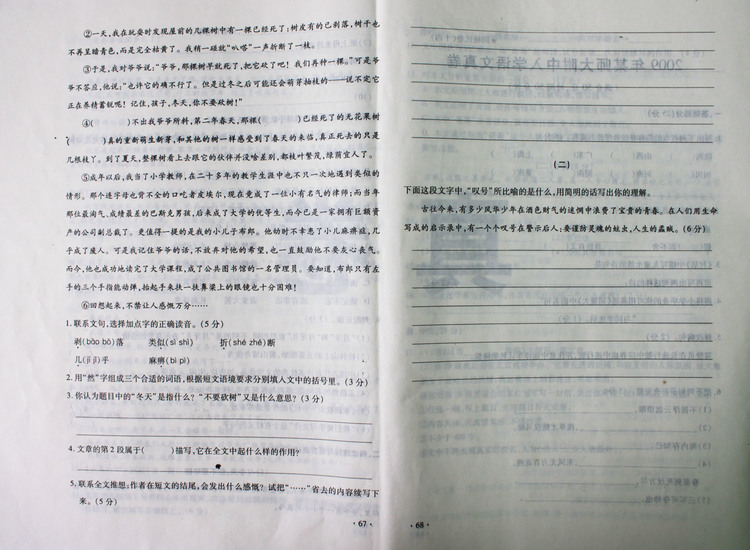 ②一天,我在玩耍时发现屋前的几棵树中有一棵已经死了:树皮有的已剥落,树干也
不再呈暗青色,而是完全枯黄了。我稍一碰就“叭嗒”一声折断了一枝。
③于是,我对爷爷说:“爷爷,那棵树早就死了,把它砍了吧!我们再种一棵。”可是爷
爷不答应,他说:“也许它的确不行了。但是过冬之后可能还会萌芽抽枝的——说不定它
正在养精蓄锐呢!记住,孩子,冬天,你不要砍树!”
④( )不出我爷爷所料,第二年春天,那棵( )已经死了的无花果树
( )真的重新萌生新芽,和其他的树一样感受到了春天的来临,真正死去的只是
几根枝丫。到了夏天,整棵树看上去跟它的伙伴并没啥差别,都枝叶繁茂,绿荫宜人了。
⑤成年以后,我当了小学教师,在二十多年的教学生涯中也不只一次地遇到类似的
情形。那个连字母也背不全的口吃者皮埃尔,现在竟成了一位小有名气的律师;而当年
那位最淘气、成绩最差的巴斯克男孩,后来成了大学的优等生,而今已是一家拥有巨额资
产的公司副总裁了。更值得一提的是我的小儿子布郎。他幼时不幸患了小儿麻痹症,几
乎成了废人。可是我记住爷爷的话,不放弃对他的希望,也一直鼓励他不要灰心丧气。
而今,他也成功地读完了大学课程,成了公共图书馆的一名管理员。要知道,布郎只有左
手的三个手指能动弹,抬起手来扶一扶鼻梁上的眼镜也十分困难!
⑥回想起来,不禁让人感慨万分……
1.联系文句,选择加点字的正确读音。(5分)
剥(bāo bō)落 类似(sì shì) 折(shé zhé)断
儿(jī jǐ)乎 麻痹(bì pì)
2.用“然”字组成三个合适的词语,根据短文语境要求分别填入文中的括号里。(3分)
3.你认为题目中的“冬天”是指什么?“不要砍树”又是什么意思?(3分)
4.文章的第2段属于( )描写,它在全文中起什么样的作用?
5.联系全文推想:作者在短文的结尾,会发出什么感慨?试把“……”省去的内容续写下
来。(5分)
·67·
(二)
下面这段文字中,“叹号”所比喻的是什么,用简明的话写出你的理解。
古往今来,有多少风华少年在酒色财气的迷惘中浪费了宝贵的青春。在人们用生命
写成的启示录中,有一个个叹号在警示后人:要谨防灵魂的蛀虫,人生的盂贼。(6分)
·68·